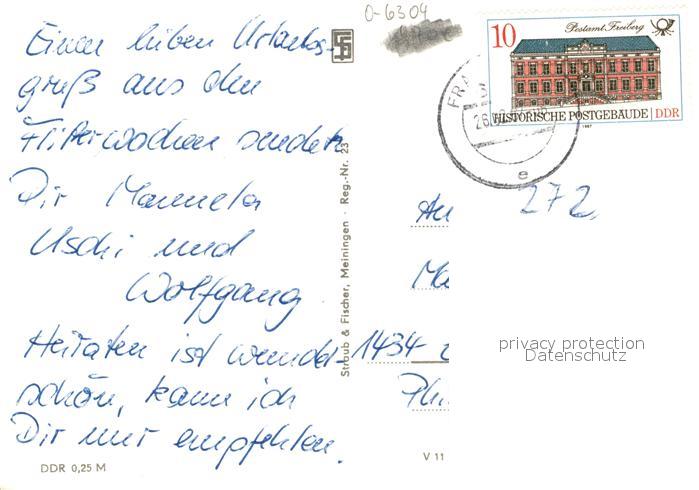 0-6304
Einen lieben Urlaubs-
gruß aus den
Flitterwochen sendet
Dir Manuela
Uschi und
Wolfgang
Heiraten ist wunder-
schön, kann ich
Dir nur empfehlen.
DDR 0,25 M
Straub & Fischer, Meiningen · Reg.-Nr. 23
V 11
10
Postamt Freiberg
HISTORISCHE POSTGEBÄUDE | DDR
1987
FRA
e
272
An
Ma
1434
privacy protection
Datenschutz